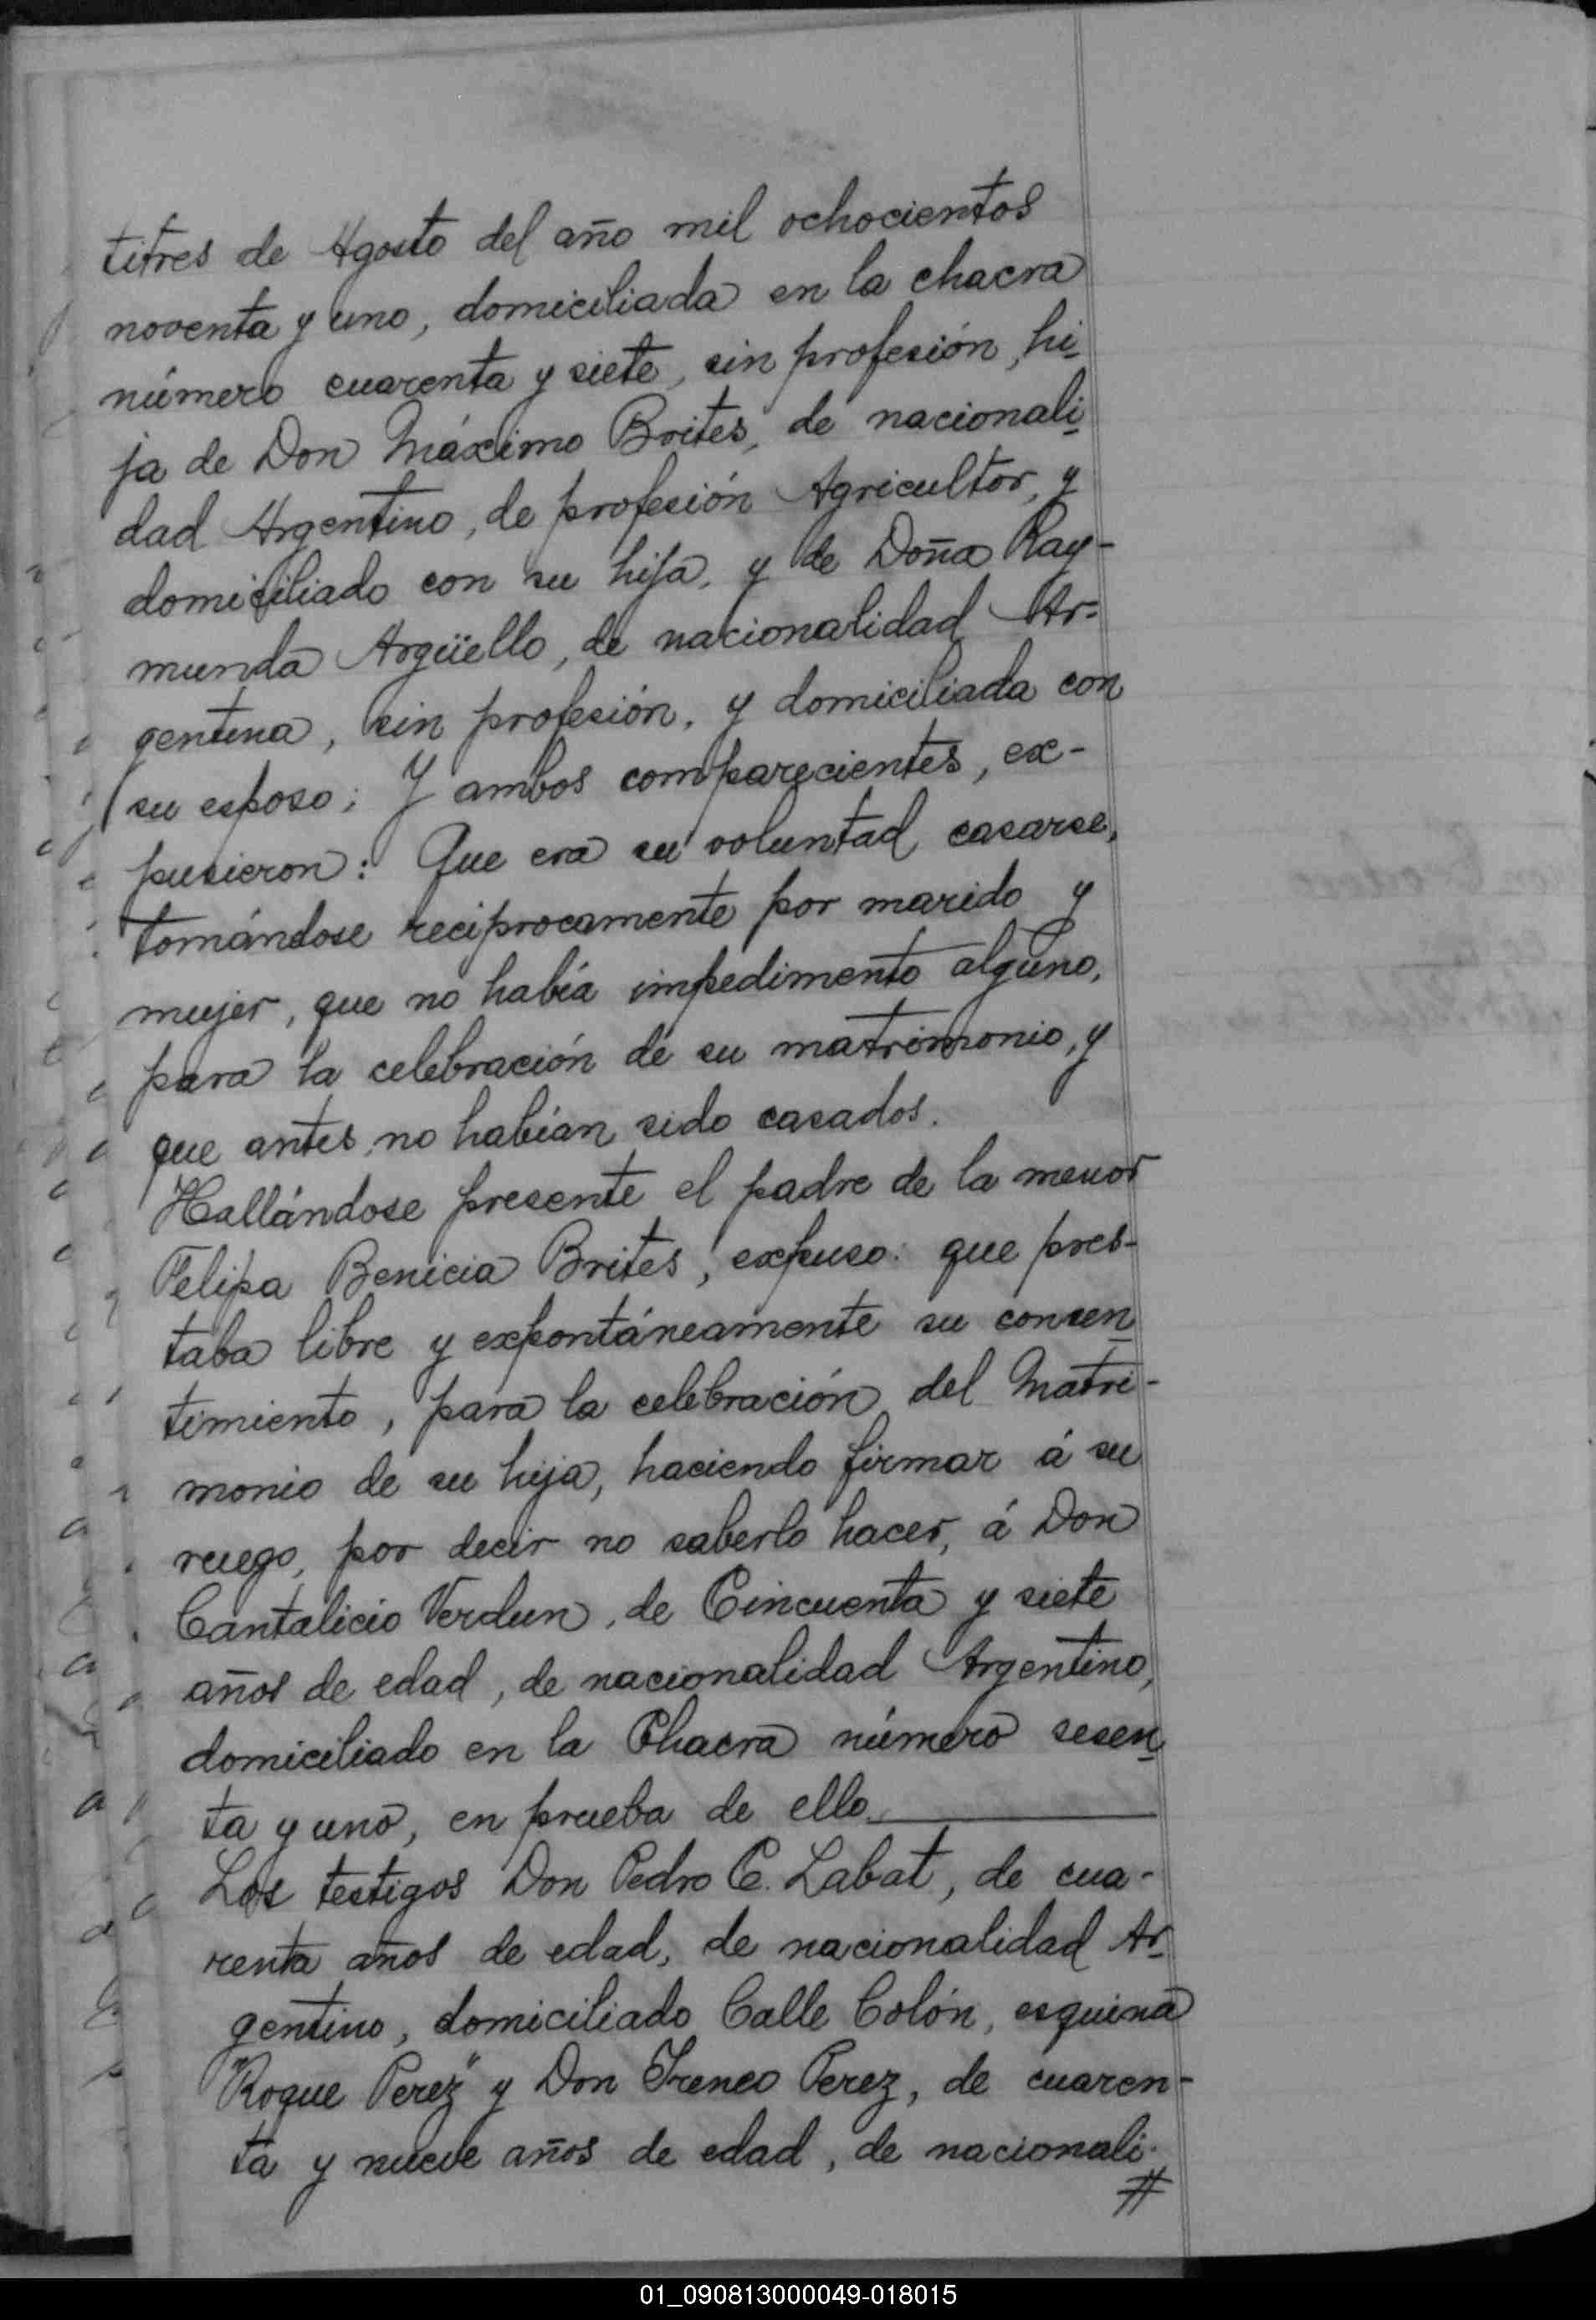 titres de Agosto del año mil ochocientos
noventa y uno, domiciliada en la chacra
número cuarenta y siete, sin profesión, hi-
ja de Don Máximo Brites, de nacionali-
dad Argentino, de profesión Agricultor, y
domiciliado con su hija, y de Doña Ray-
munda Argüello, de nacionalidad Ar=
gentina, sin profesión, y domiciliada con
su esposo; Y ambos comparecientes, ex-
pusieron: Que era su voluntad casarse,
tomándose reciprocamente por marido y
mujer, que no había impedimento alguno,
para la celebración de su matrimonio, y
que antes no habían sido casados.
Hallándose presente el padre de la menor
Felipa Benicia Brites, expuso: que pres-
taba libre y expontáneamente su consen-
timiento, para la celebración del Matri-
monio de su hija, haciendo firmar á su
ruego, por decir no saberlo hacer, á Don
Cantalicio Verdun, de Cincuenta y siete
años de edad, de nacionalidad Argentino,
domiciliado en la Chacra número sesen-
ta y uno, en prueba de ello.
Los testigos Don Pedro C. Labat, de cua-
renta años de edad, de nacionalidad Ar-
gentino, domiciliado Calle Colón, esquina
"Roque Perez" y Don Ireneo Perez, de cuaren-
ta y nueve años de edad, de nacionali-
#
01_090813000049-018015